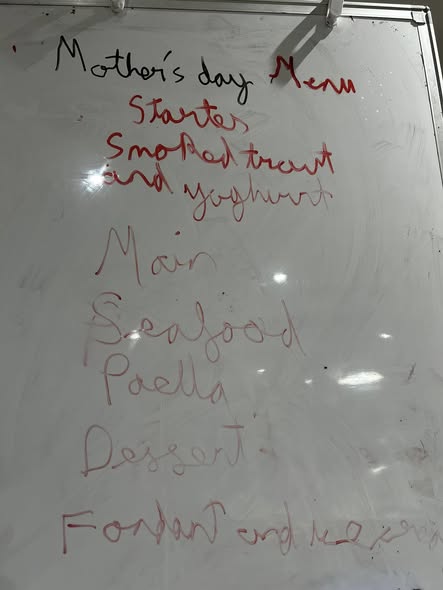 Mother's day Menu
Startes
Smoked trout
and yoghurt
Main
Seafood
Paella
Dessert
Fondant and